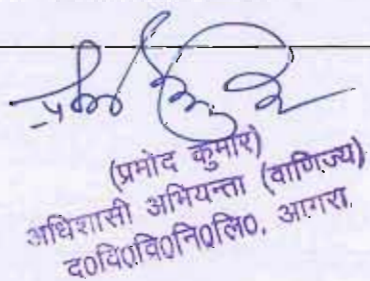 (प्रमोद कुमार)
अधिशासी अभियन्ता (वाणिज्य)
द0वि0वि0नि0लि0, आगरा.